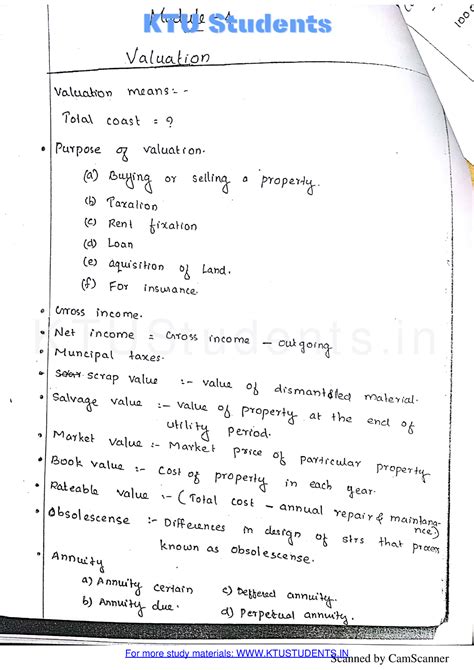 Module - 4
KTU Students
Valuation
Valuation means:- -
Total coast = ?
• Purpose of valuation.
(a) Buying or selling a property.
(b) Taxation
(c) Rent fixation
(d) Loan
(e) aquisition of Land.
(f) For insurance.
• Gross income.
• Net income = Gross income - outgoing
• Muncipal taxes.
• scrap value :- value of dismantled material.
• Salvage value :- value of property at the end of
utility period.
• Market value :- Market price of particular property
• Book value :- Cost of property in each year.
• Rateable value :- (Total cost - annual repair & maintana-
nce)
• Obsolescense :- Differences in design of strs that
known as obsolescense.
• Annuity
a) Annuity certain c) Deffered annuity.
b) Annuity due. d) perpetual annuity.
KTUStudents.in
For more study materials: WWW.KTUSTUDENTS.IN
Scanned by CamScanner
1000